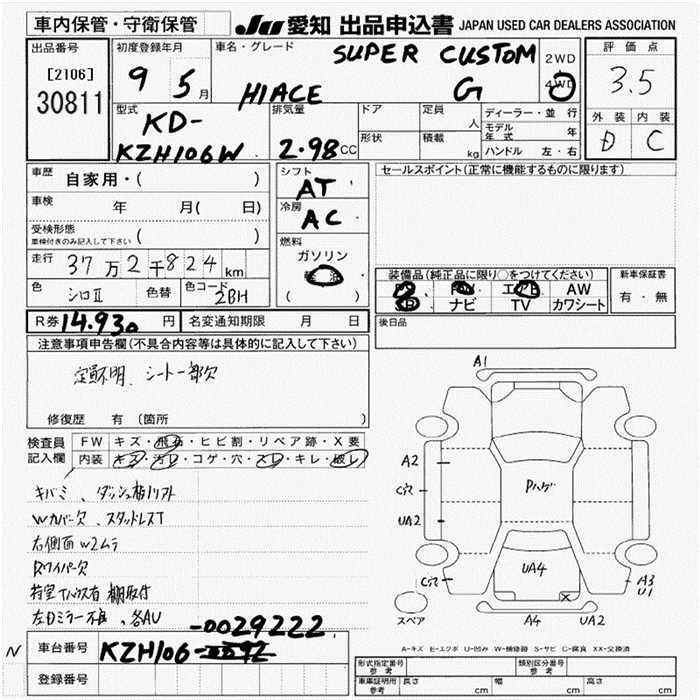 車内保管・守衛保管
JU 愛知 出品申込書 JAPAN USED CAR DEALERS ASSOCIATION
出品番号
[2106]
30811
初度登録年月
9 5月
車名・グレード
SUPER CUSTOM
HIACE G
2WD
4WD
評価点
3.5
外装 内装
D C
型式
KD-
KZH106W
排気量
2.98CC
ドア
形状
定員 人
積載 kg
ディーラー・並行
モデル年式 年
ハンドル 左・右
車歴 自家用・( )
車検 年 月( 日)
受検形態
車検付きのみ記入して下さい ( )
走行 37万2千824km
色 シロⅡ 色替 色コード 2BH
シフト
AT
冷房
AC
燃料
ガソリン
( )
セールスポイント(正常に機能するものに限ります)
装備品(純正品に限り○をつけてください)
PS PW エアB AW
SR ナビ TV カワシート
新車保証書
有・無
R券 14,930円 名変通知期限 月 日
後日品
注意事項申告欄(不具合内容等は具体的に記入して下さい)
シート一部欠
修復歴 有(箇所 )
検査員
記入欄
FW キズ・飛石・ヒビ割・リペア跡・X要
内装 キズ・汚レ・コゲ・穴・スレ・キレ・破レ
キバミ、ダッシュ板リフト
Wカバー欠、スタッドレスT
右側面W2ムラ
Rワイパー欠
棚取付
左Dミラー不良、各AU
N 車台番号 KZH106-0092
-0029222
登録番号
A1
A2
C穴
UA2
C穴
Pハゲ
UA4
X
A3
U1
スペア
A4 UA2
A-キズ E-エクボ U-凹み W-補修跡 S-サビ C-腐食 XX-交換済
形式指定番号
参考
類別区分番号
参考
車庫証明用
参考
長さ cm 幅 cm 高さ cm